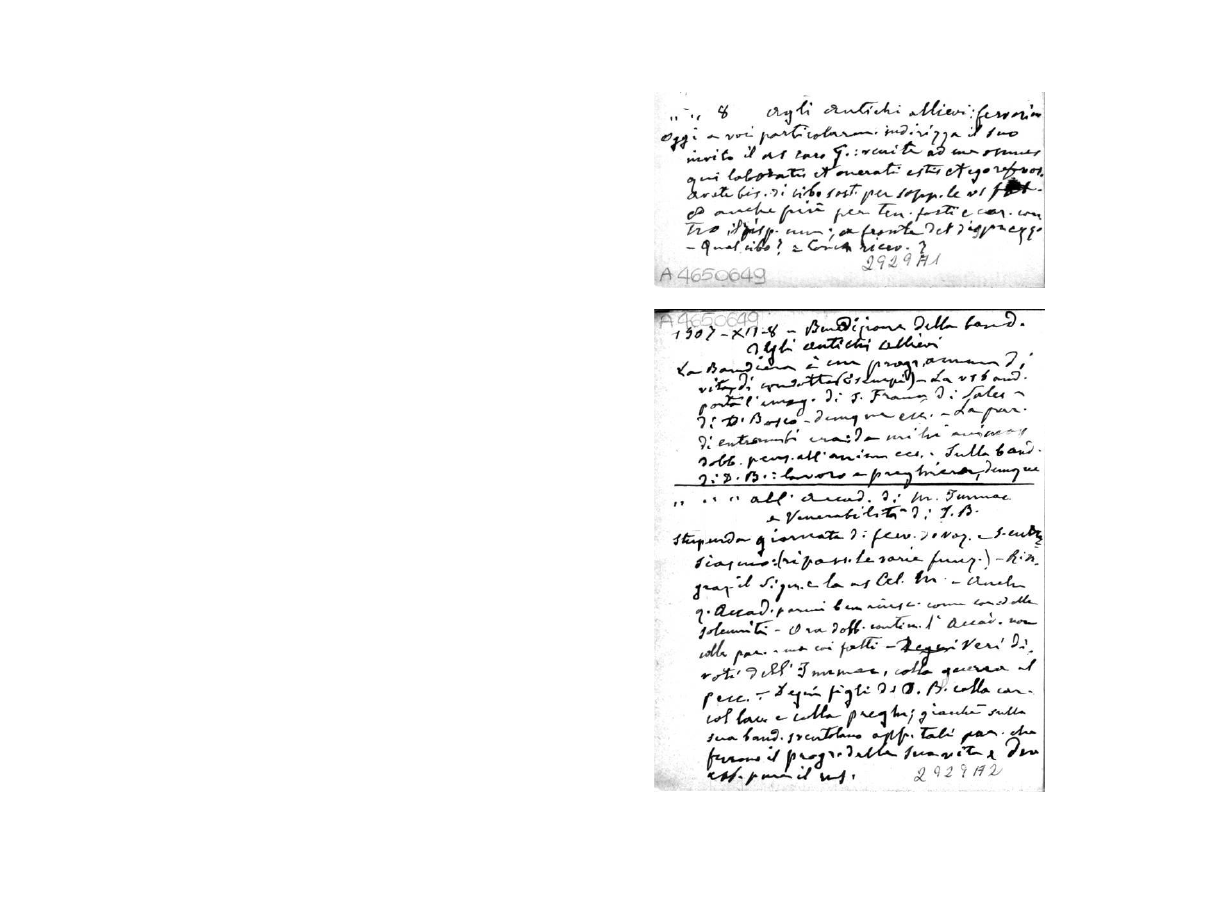 " " 8 Agli antichi allievi: fervorin
Oggi a voi particolarm. indirizza il suo
invito il ns caro G.: venite ad me omnes
qui laboratis et onerati estis et ego refi. vos.
avete bis. di cibo sost. per sopp. le vs
e anche più per ten. forti e cor. con
tro il risp. um; a fronte del disprezzo
- Qual cibo? = Com. ricev. ?
2929A1
A4650649
A4650649
1907-XII-8 - Bendizione della band.
Agli antichi allievi
La Bandiera è un programma di
vita, di condotta (esempi) - La vs band.
porta l'imag. di S. Franc. di Sales -
di D. Bosco - dunque ecc. - La par.
di entrambi era: da mihi animas
dobb. pens. all'anima ecc. - Sulla band.
di D. B.: lavoro e preghiera, dunque
" " " all' Accad. di M. Immac
e Venerabilità di D. B.
Stupenda giornata di ferv. di s. entu
siasmo: (ripass. le varie funz.) - Rin.
graz. il Sign. e la ns Cel. M. - Anche
q. Accad. parmi ben riusc. come cor. delle
solennità - Ora dobb. contin. l' Accad. non
colle par. - ma coi fatti - Veri di,
voti dell' Immac, colla guerra al
pecc. - Degni figli di D. B. colla car.
col lav. e colla pregh; giacchè sulla
sua band. sventolano app. tali par. che
furono il progr. della sua vita e dev
ess. pure il ns.
2929A2